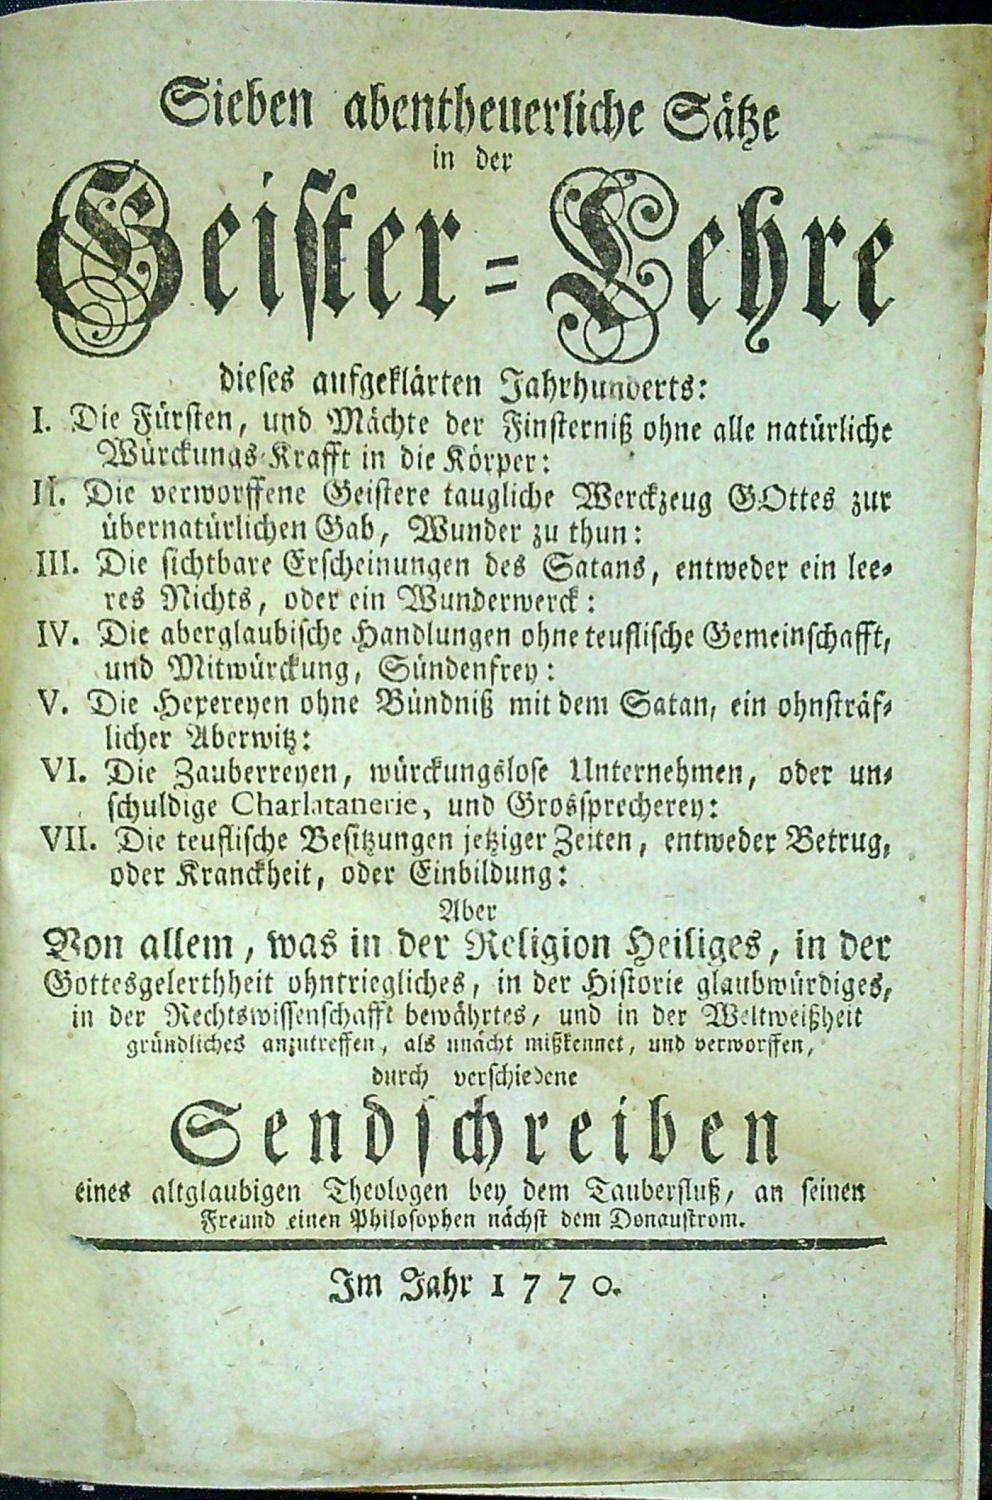 Sieben abentheuerliche Sätze
in der
Geister-Lehre
dieses aufgeklärten Jahrhunderts:
I. Die Fürsten, und Mächte der Finsterniß ohne alle natürliche
Würckungs-Krafft in die Körper:
II. Die verworffene Geistere taugliche Werckzeug GOttes zur
übernatürlichen Gab, Wunder zu thun:
III. Die sichtbare Erscheinungen des Satans, entweder ein lee-
res Nichts, oder ein Wunderwerck:
IV. Die aberglaubische Handlungen ohne teuflische Gemeinschafft,
und Mitwürckung, Sündenfrey:
V. Die Hexereyen ohne Bündniß mit dem Satan, ein ohnsträf-
licher Aberwitz:
VI. Die Zauberreyen, würckungslose Unternehmen, oder un-
schuldige Charlatanerie, und Grossprecherey:
VII. Die teuflische Besitzungen jetziger Zeiten, entweder Betrug,
oder Kranckheit, oder Einbildung:
Aber
Von allem, was in der Religion Heiliges, in der
Gottesgelerthheit ohntriegliches, in der Historie glaubwürdiges,
in der Rechtswissenschafft bewährtes, und in der Weltweißheit
gründliches anzutreffen, als unächt mißkennet, und verworffen,
durch verschiedene
Sendschreiben
eines altglaubigen Theologen bey dem Tauberfluß, an seinen
Freund einen Philosophen nächst dem Donaustrom.
Im Jahr 1770.